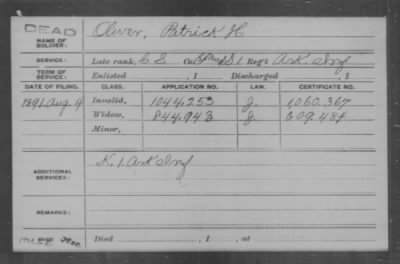 DEAD
NAME OF SOLDIER: Oliver, Patrick H
SERVICE: Late rank, C S Co. F and S 1 Reg't Ark. Inf
TERM OF SERVICE: Enlisted , 1 Discharged , 1
DATE OF FILING. CLASS. APPLICATION NO. LAW. CERTIFICATE NO.
1891 Aug 4 Invalid, 1044.253 J. 1060.367
Widow, 844.943 J. 609.484
Minor,
K. 1. Ark Inf
ADDITIONAL SERVICES:
REMARKS:
Died , 1 , at